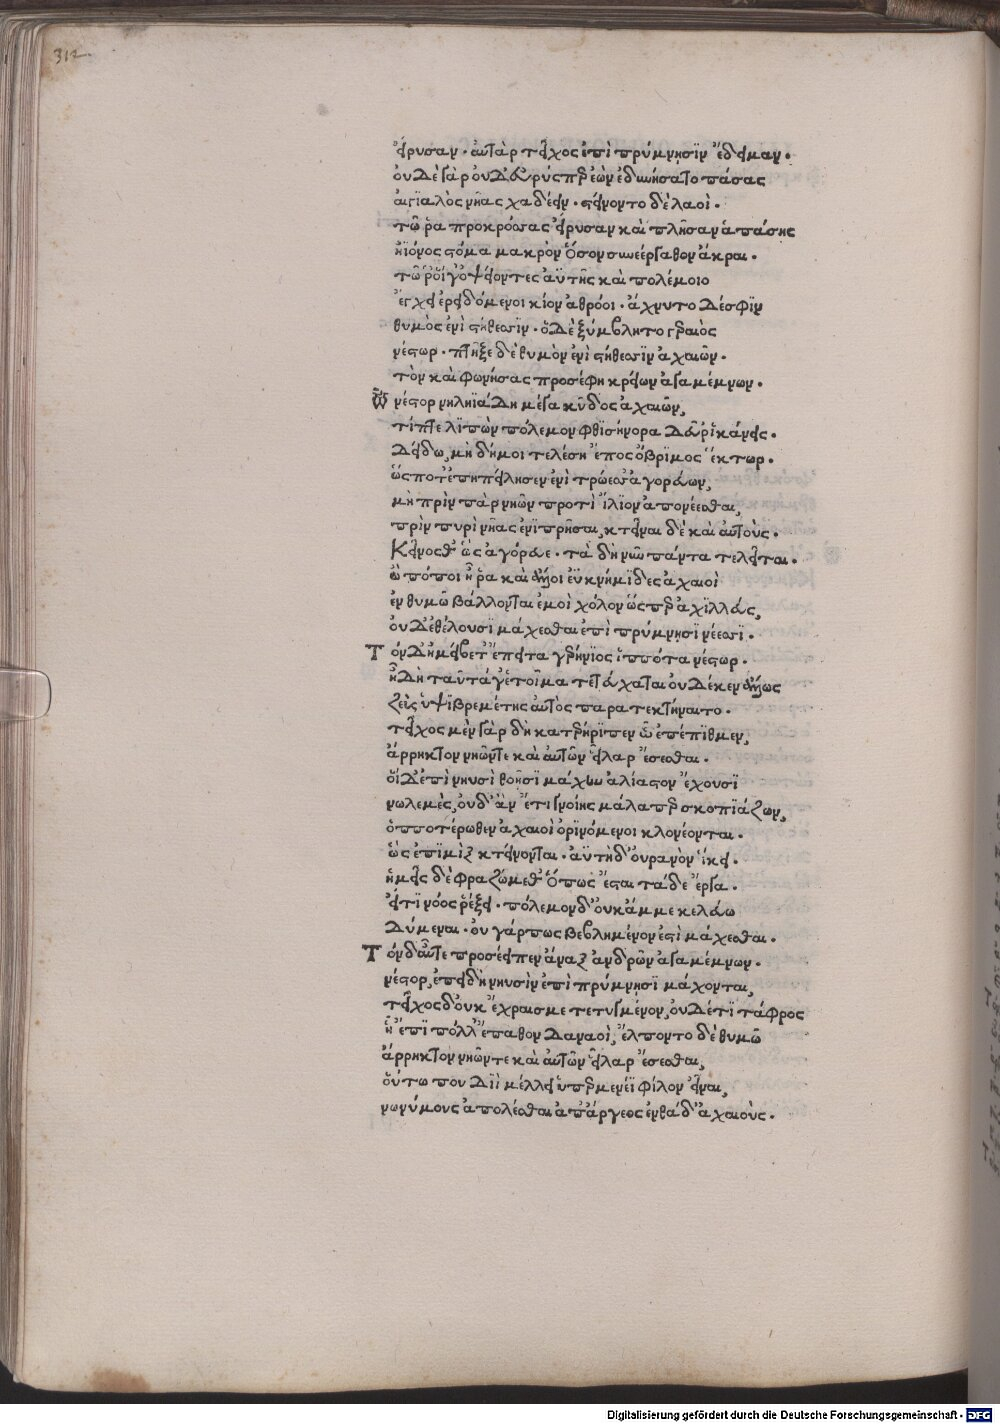 312
εἴρυσαν· αὐτὰρ τεῖχος ἐπὶ πρύμνησϊν ἔδειμαν·
οὐδὲ γὰρ οὐδ' εὐρύς περ ἐὼν ἐδυνήσατο πάσας
αἰγϊαλὸς νῆας χαδέειν· στείνοντο δὲ λαοὶ·
τῶ ῥα προκρόσσας εἴρυσαν καὶ πλῆσαν ἁπάσης
ἠϊόνος στόμα μακρὸν ὅσον συνεέργαθον ἄκραι·
τῶ ῥ' οἵ γ' ὀψείοντες ἀϋτῆς καὶ πολέμοιο
ἔγχει ἐρειδόμενοι κίον ἀθρόοι· ἄχνυτο δέ σφϊν
θυμὸς ἐνὶ στήθεσσϊν· ὁ δὲ ξύμβλητο γεραιὸς
νέστωρ· πτῆξε δὲ θυμὸν ἐνὶ στήθεσσϊν ἀχαιῶν·
τὸν καὶ φωνήσας προσέφη κρείων ἀγαμέμνων·
ὦ νέστορ νηληϊάδη μέγα κῦδος ἀχαιῶν,
τίπτε λϊπὼν πόλεμον φθισήνορα δεῦρ' ἱκάνεις·
δείδω, μὴ δή μοι τελέση ἔπος ὄβρϊμος ἕκτωρ·
ὥς ποτ' ἐπηπείλησεν ἐνὶ τρώεσσ' ἀγορεύων,
μὴ πρὶν πὰρ νηῶν προτὶ ἴλϊον ἀπονέεσθαι,
πρὶν πυρὶ νῆας ἐνϊπρῆσαι, κτεῖναι δὲ καὶ αὐτοὺς·
Κεῖνος θ' ὣς ἀγόρευε· τὰ δὴ νῦν πάντα τελεῖται·
ὢ πόποι ἦ ῥα καὶ ἄλλοι ἐϋκνήμϊδες ἀχαιοὶ
ἐν θυμῶ βάλλονται ἐμοὶ χόλον ὥς περ ἀχϊλλεύς,
οὐδ' ἐθέλουσϊ μάχεσθαι ἐπὶ πρύμνησϊ νέεσσϊ·
Τὸν δ' ἠμείβετ' ἔπειτα γερήνϊος ἱππότα νέστωρ·
ἦ δὴ ταῦτά γ' ἑτοῖμα τετεύχαται οὐδέ κεν ἄλλως
ζεὺς ὑψϊβρεμέτης αὐτὸς παρατεκτήναιτο·
τεῖχος μὲν γὰρ δὴ κατερήρϊπεν ὧ ἐπέπϊθμεν,
ἄρρηκτον νηῶν τε καὶ αὐτῶν εἶλαρ ἔσεσθαι·
οἵ δ' ἐπὶ νηυσὶ θοῆσϊ μάχην ἀλίαστον ἔχουσϊ
νωλεμὲς, οὐδ' ἂν ἔτι γνοίης μάλα περ σκοπϊάζων,
ὁπποτέρωθεν ἀχαιοὶ ὀρϊνόμενοι κλονέονται·
ὡς ἐπϊμὶξ κτείνονται· ἀϋτὴ δ' οὐρανὸν ἵκει·
ἡμεῖς δὲ φραζώμεθ' ὅπως ἔσται τάδε ἔργα·
εἴ τϊ νόος ῥέξει· πόλεμον δ' οὐκ ἄμμε κελεύω
δύμεναι· οὐ γάρ πως βεβλημένον ἐστὶ μάχεσθαι·
Τὸν δ' αὖτε προσέειπεν ἄναξ ἀνδρῶν ἀγαμέμνων·
νέστορ, ἐπειδὴ νηυσὶν ἐπὶ πρύμνησϊ μάχονται,
τεῖχος δ' οὐκ ἔχραισμε τετυγμένον, οὐδέ τϊ τάφρος
ἧ ἔπϊ πόλλ' ἔπαθον δαναοὶ, ἔλποντο δὲ θυμῶ
ἄρρηκτον νηῶν τε καὶ αὐτῶν εἶλαρ ἔσεσθαι,
οὕτω που Διὶ μέλλει ὑπερμενέϊ φίλον εἶναι,
νωνύμους ἀπολέσθαι ἀπ' ἄργεος ἐνθάδ' ἀχαιοὺς·
Digitalisierung gefördert durch die Deutsche Forschungsgemeinschaft - DFG